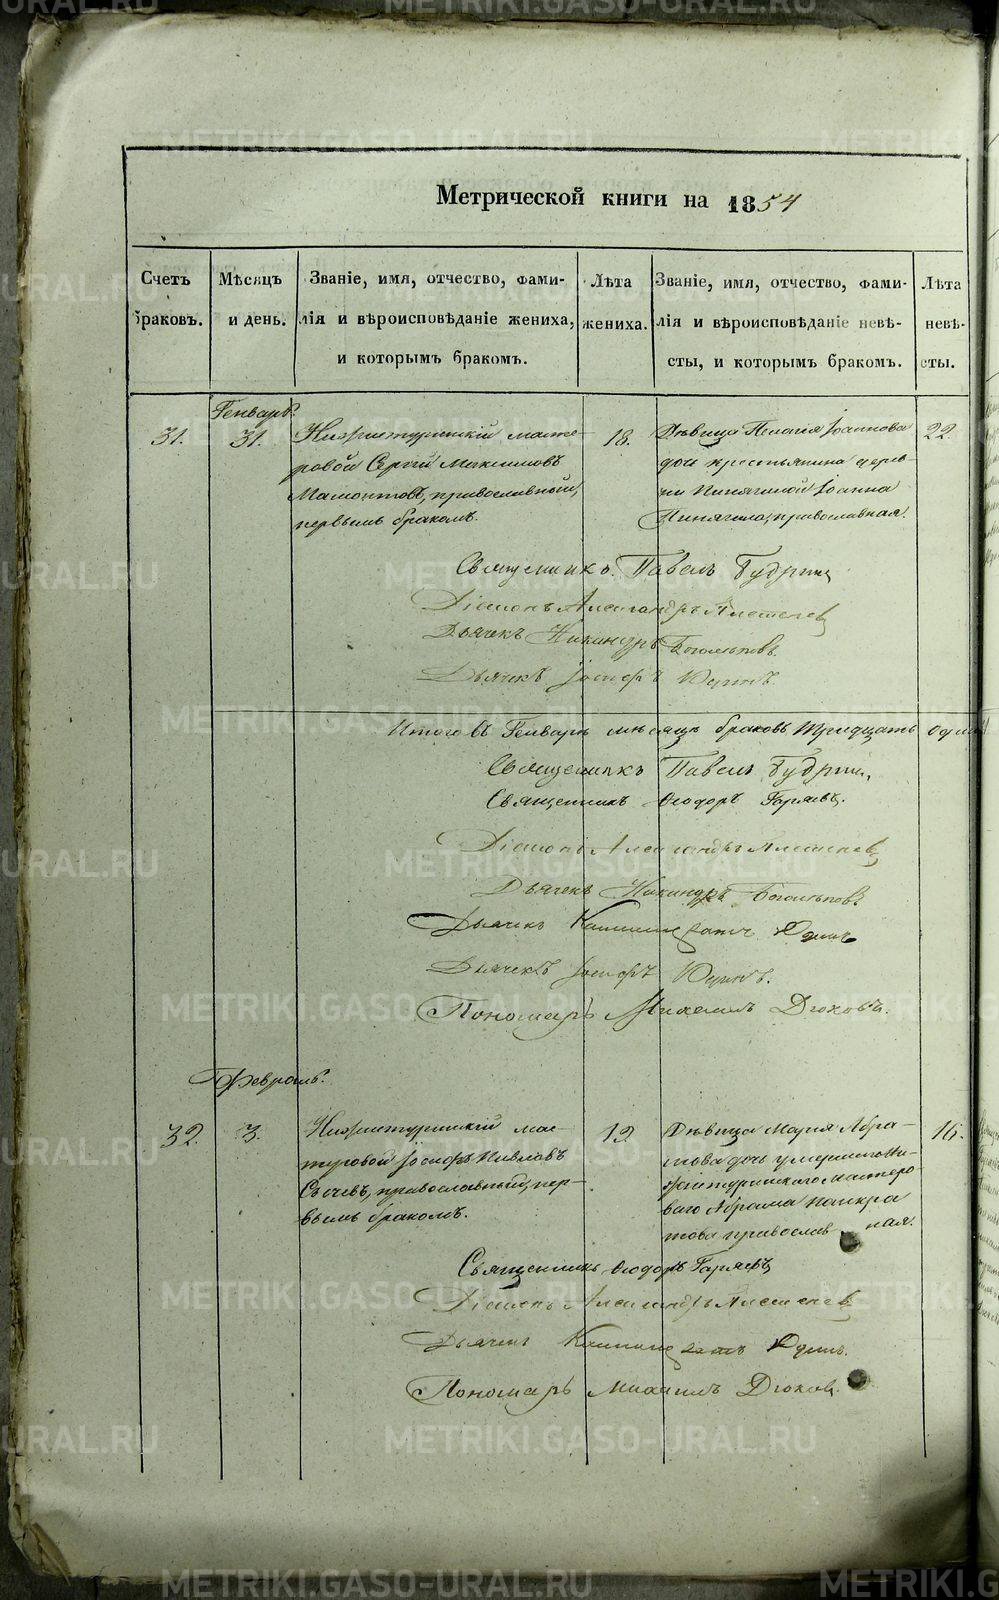 Метрической книги на 1854
Счетъ браковъ.
Мѣсяцъ и день.
Званіе, имя, отчество, фами-
лія и вѣроисповѣданіе жениха,
и которымъ бракомъ.
Лѣта
жениха.
Званіе, имя, отчество, фами-
лія и вѣроисповѣданіе невѣ-
сты, и которымъ бракомъ.
Лѣта
невѣ-
сты.
Генварь.
31.
31.
Нижнетуринскій масте-
ровой Сергій Максимовъ
Мамонтовъ, православный,
первымъ бракомъ.
18.
Дѣвица Пелагія Іоаннова
дочь крестьянина дерев-
ни Пинягиной Іоанна
Пинягина, православная.
22.
Священникъ Павелъ Будринъ
Діаконъ Александръ
Дьячекъ Никандръ Богомъ
Дьячекъ Іосифъ Юдинъ.
Итого въ Генварѣ мѣсяцѣ браковъ тридцать одинъ
Священникъ Павелъ Будринъ
Священникъ Ѳеодоръ Горяевъ.
Діаконъ Александръ
Дьячекъ Никандръ
Дьячекъ Юдинъ
Дьячекъ Іосифъ Юдинъ.
Пономарь Михаилъ Дюковъ.
Февраль.
32.
3.
Нижнетуринскій мас-
теровой Іосифъ Павловъ
Сычевъ, православный, пер-
вымъ бракомъ.
19.
Дѣвица Марія Абра-
мова дочь умершаго Ни-
жнетуринскаго мастеро-
ваго Абрама Панкра
това православ-
ная.
16.
Священникъ Ѳеодоръ Горяевъ
Діаконъ Александръ
Дьячекъ Юдинъ.
Пономарь Михаилъ Дюковъ.
METRIKI.GASO-URAL.RU